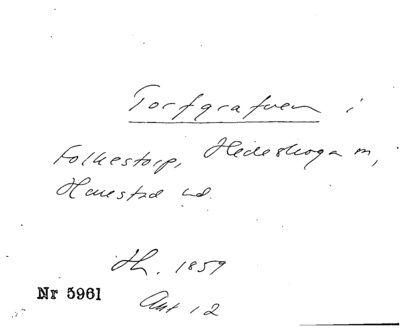 Torfgrafven i
Folkestorp, Hedeskoga m,
Hanestad nd.
Hh. 1859
Nr 5961
Ant 12